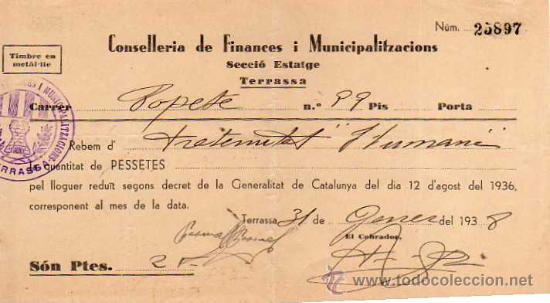 Núm. 25897
Timbre en
metàl·lic
Conselleria de Finances i Municipalitzacions
Secció Estatge
Terrassa
Carrer Topete n.º 99 Pis Porta
Rebem d' Fraternitat "Humani
la quantitat de PESSETES
pel lloguer reduït segons decret de la Generalitat de Catalunya del dia 12 d'agost del 1936,
corresponent al mes de la data.
Terrassa 31 de Gener del 1938
El Cobrador,
Són Ptes. 2
TERRASSA
todocoleccion.net